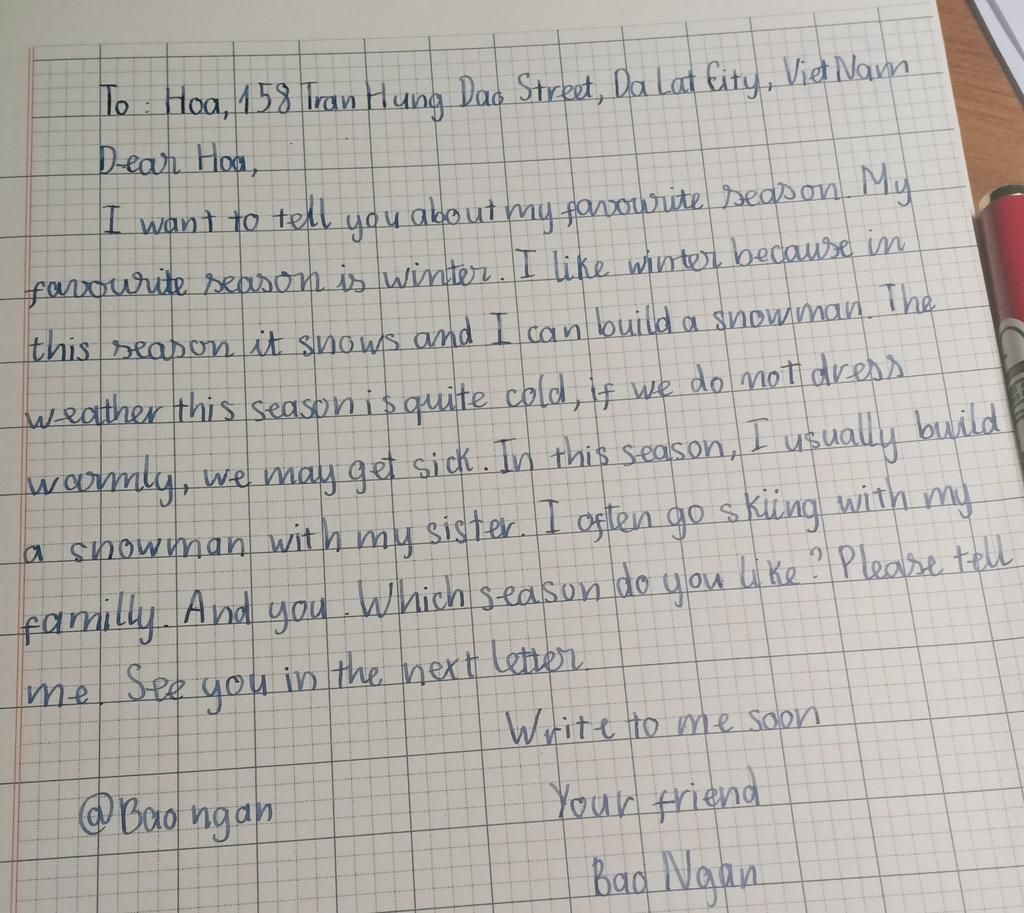 To : Hoa, 158 Tran Hung Dao Street, Da Lat City, Viet Nam
Dear Hoa,
I want to tell you about my favourite season. My
favourite season is winter. I like winter because in
this season it snows and I can build a snowman. The
weather this season is quite cold, if we do not dress
warmly, we may get sick. In this season, I usually build
a snowman with my sister. I often go skiing with my
familly. And you. Which season do you like? Please tell
me. See you in the next letter.
Write to me soon
@Bao ngan
Your friend
Bao Ngan